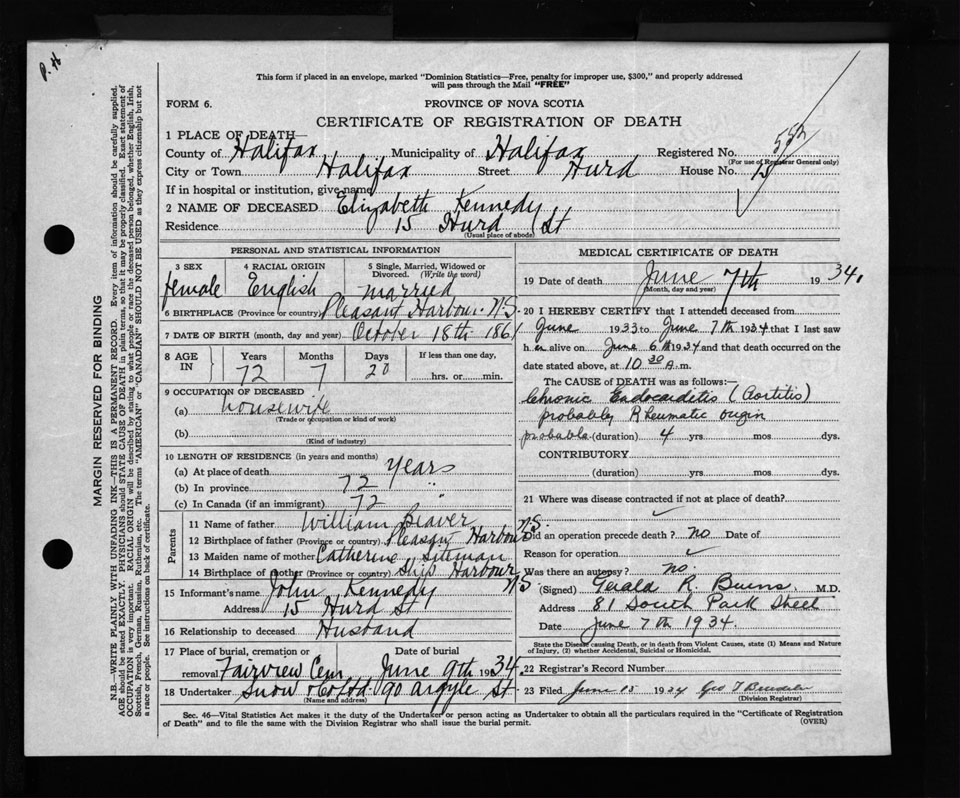 P. H
This form if placed in an envelope, marked "Dominion Statistics—Free, penalty for improper use, $300," and properly addressed
will pass through the Mail "FREE"
FORM 6.
PROVINCE OF NOVA SCOTIA
CERTIFICATE OF REGISTRATION OF DEATH
1 PLACE OF DEATH—
County of Halifax Municipality of Halifax Registered No. 553
(For use of Registrar General only)
City or Town Halifax Street Hurd House No. 15
If in hospital or institution, give name
2 NAME OF DECEASED Elizabeth Kennedy
Residence 15 Hurd St
(Usual place of abode)
PERSONAL AND STATISTICAL INFORMATION
3 SEX female
4 RACIAL ORIGIN English
5 Single, Married, Widowed or Divorced. (Write the word) married
6 BIRTHPLACE (Province or country) Pleasant Harbour N.S.
7 DATE OF BIRTH (month, day and year) October 18th 1861
8 AGE IN Years 72 Months 7 Days 20 If less than one day, hrs. or min.
9 OCCUPATION OF DECEASED
(a) housewife
(Trade or occupation or kind of work)
(b)
(Kind of industry)
10 LENGTH OF RESIDENCE (in years and months)
(a) At place of death years
(b) In province 72 "
(c) In Canada (if an immigrant) 72 "
Parents
11 Name of father William Beaver
12 Birthplace of father (Province or country) Pleasant Harbour N.S.
13 Maiden name of mother Catherine
14 Birthplace of mother (Province or country) Ship Harbour N S
15 Informant's name John Kennedy
Address 15 Hurd St
16 Relationship to deceased Husband
17 Place of burial, cremation or removal Fairview Cem Date of burial June 9th 1934.
18 Undertaker Snow & Co Ltd 90 Argyle St.
(Name and address)
MEDICAL CERTIFICATE OF DEATH
19 Date of death June 7th 1934.
(Month, day and year)
20 I HEREBY CERTIFY that I attended deceased from
June 1933 to June 7th 1934 that I last saw
h er alive on June 6th 1934 and that death occurred on the
date stated above, at 10 30 A. m.
The CAUSE OF DEATH was as follows:—
Chronic Endocarditis (Aortitis)
probably Rheumatic origin
probable (duration) 4 yrs. mos dys.
CONTRIBUTORY
(duration) yrs. mos dys.
21 Where was disease contracted if not at place of death?
Did an operation precede death? no Date of
Reason for operation
Was there an autopsy? no.
(Signed) Gerald R Burns M.D.
Address 81 South Park Street
Date June 7th 1934.
State the Disease causing Death, or in death from Violent Causes, state (1) Means and Nature
of Injury, (2) whether Accidental, Suicidal or Homicidal.
22 Registrar's Record Number
23 Filed June 15 1934 Geo T
(Division Registrar)
Sec. 46—Vital Statistics Act makes it the duty of the Undertaker or person acting as Undertaker to obtain all the particulars required in the "Certificate of Registration
of Death" and to file the same with the Division Registrar who shall issue the burial permit.
(OVER)
MARGIN RESERVED FOR BINDING
N.B.—WRITE PLAINLY WITH UNFADING INK—THIS IS A PERMANENT RECORD. Every item of information should be carefully supplied.
AGE should be stated EXACTLY. PHYSICIANS should STATE CAUSE OF DEATH in plain terms, so that it may be properly classified. Exact statement of
OCCUPATION is very important. RACIAL ORIGIN will be described by stating to what people or race the deceased person belonged, whether English, Irish,
Scottish, French, German, Russian, Ruthenian, etc. The terms "AMERICAN" or "CANADIAN" SHOULD NOT BE USED as they express citizenship but not
a race or people. See instructions on back of certificate.